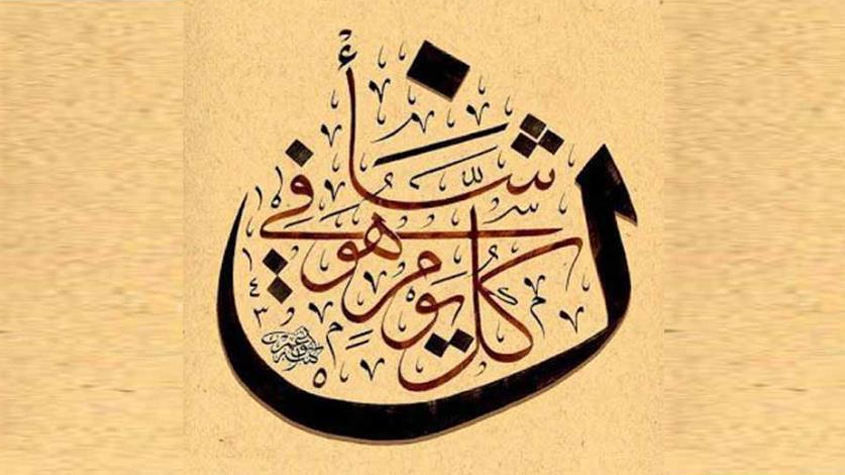 كل يوم هو في شأن